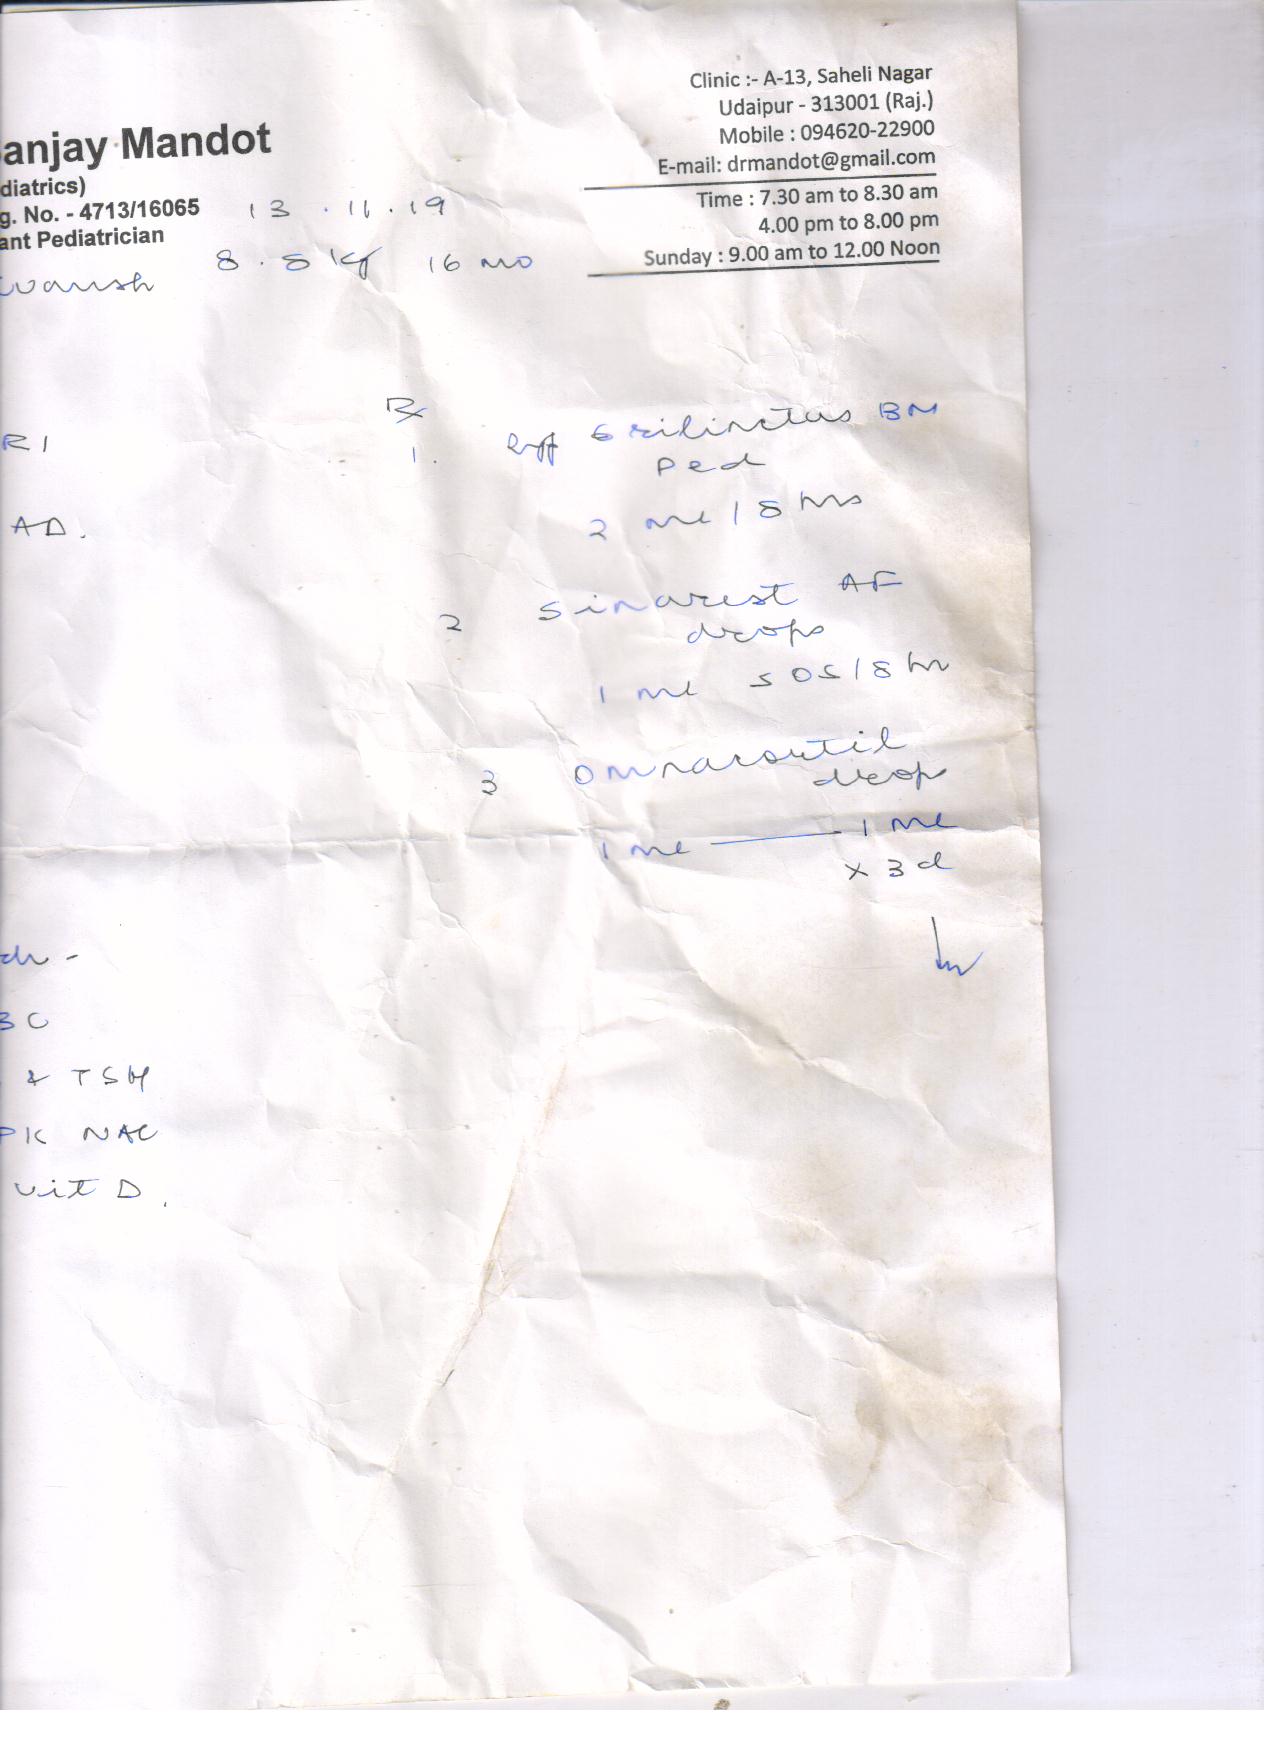 Clinic :- A-13, Saheli Nagar
Udaipur - 313001 (Raj.)
Mobile : 094620-22900
E-mail: drmandot@gmail.com
Time : 7.30 am to 8.30 am
4.00 pm to 8.00 pm
Sunday : 9.00 am to 12.00 Noon
anjay Mandot
diatrics)
g. No. - 4713/16065
ant Pediatrician
13 . 11 . 19
8.8 Kg 16 mo
vansh
RI
AD.
Rx
1. BM
Ped
2 ml / 8 hrs
2 Sinarest AF
drops
1 ml SOS / 8 hr
3
drops
1 ml — 1 ml
x 3 d
BC
& TSH
PK NAC
Vit D.